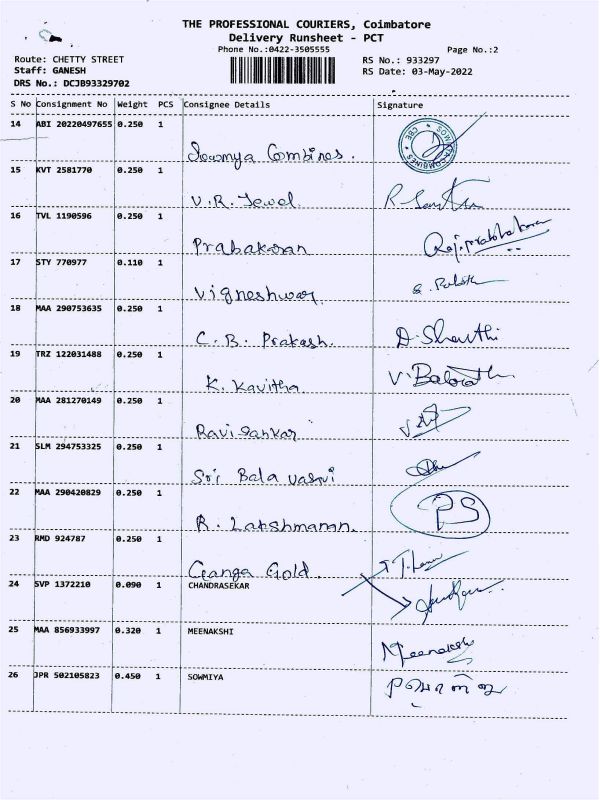 THE PROFESSIONAL COURIERS, Coimbatore
Delivery Runsheet - PCT
Phone No.:0422-3505555
Page No.:2
Route: CHETTY STREET
Staff: GANESH
DRS No.: DCJB93329702
RS No.: 933297
RS Date: 03-May-2022
S No Consignment No Weight PCS Consignee Details Signature
14 ABI 20220497655 0.250 1
Sowmya Combines.
15 KVT 2581770 0.250 1
V.R. Jewel
16 TVL 1190596 0.250 1
Prabakaran Raj.prabhakaran
17 STY 770977 0.110 1
Vigneshwar
18 MAA 290753635 0.250 1
C. B. Prakash. D. Shanthi
19 TRZ 122031488 0.250 1
K. Kavitha
20 MAA 281270149 0.250 1
Ravi Sankar
21 SLM 294753325 0.250 1
Sri Bala
22 MAA 290420829 0.250 1
R. Lakshmanan. PS
23 RMD 924787 0.250 1
Ganga Gold.
24 SVP 1372210 0.090 1 CHANDRASEKAR
25 MAA 856933997 0.320 1 MEENAKSHI
Meenakshi
26 JPR 502105823 0.450 1 SOWMIYA